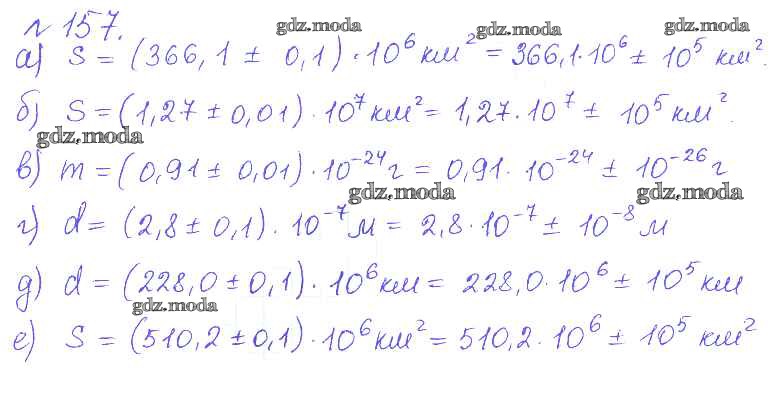 № 157.
gdz.moda gdz.moda gdz.moda
а) S = (366,1 ± 0,1) · 10⁶ км² = 366,1·10⁶ ± 10⁵ км².
б) S = (1,27 ± 0,01) · 10⁷ км² = 1,27·10⁷ ± 10⁵ км².
gdz.moda
в) m = (0,91 ± 0,01) · 10⁻²⁴ г = 0,91 · 10⁻²⁴ ± 10⁻²⁶ г
gdz.moda gdz.moda
г) d = (2,8 ± 0,1) · 10⁻⁷ м = 2,8 · 10⁻⁷ ± 10⁻⁸ м
д) d = (228,0 ± 0,1) · 10⁶ км = 228,0 · 10⁶ ± 10⁵ км
gdz.moda
е) S = (510,2 ± 0,1) · 10⁶ км² = 510,2 · 10⁶ ± 10⁵ км²